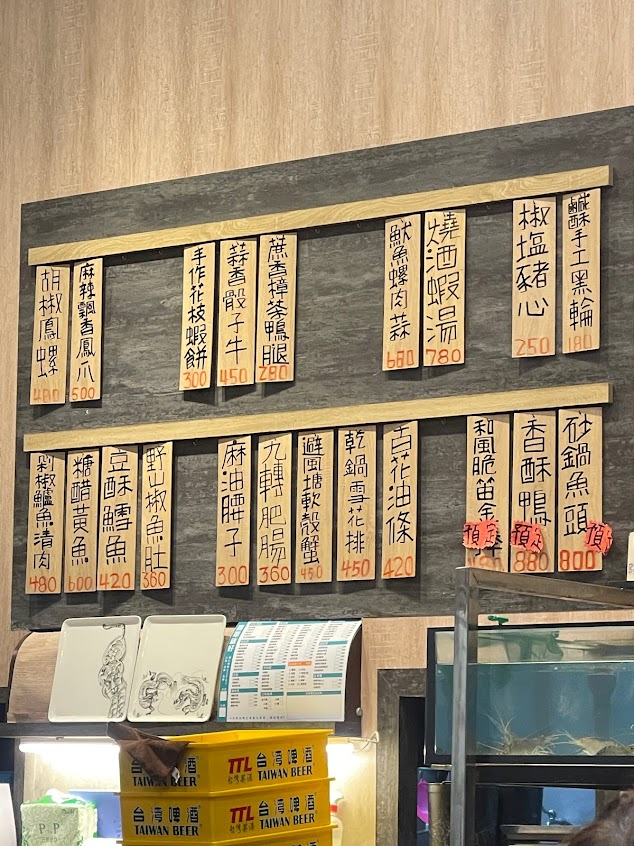 胡椒鳳螺
400
麻辣飄香鳳爪
500
手作花枝蝦餅
300
蒜香骰子牛
450
蔗香樟茶鴨腿
280
魷魚螺肉蒜
680
燒酒蝦湯
780
椒塩豬心
250
鹹酥手工黑輪
180
剁椒鱸魚清肉
480
糖醋黃魚
600
豆酥鱈魚
420
野山椒魚肚
360
麻油腰子
300
九轉肥腸
360
避風塘軟殼蟹
450
乾鍋雪花排
450
百花油條
420
和風脆笛
預定
香酥鴨
預定
880
砂鍋魚頭
預
800
台湾啤酒
TAIWAN BEER
TTL
台湾菸酒
台湾啤酒
TAIWAN BEER
台湾啤酒
TAIWAN BEER
TTL
台湾菸酒
台湾啤酒
TAIWAN BEER